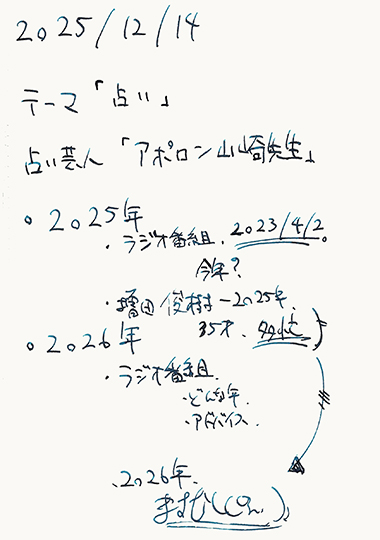 2025/12/14
テーマ「占い」
占い芸人「アポロン山崎先生」
・2025年
・ラジオ番組、2023/4/2。
今年?
・増田俊樹-2025年、
35才、多忙
・2026年
・ラジオ番組、
・どんな年
・アドバイス
・2026年、